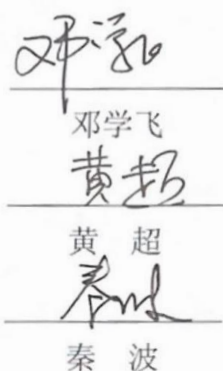 邓学飞
邓学飞
黄超
黄 超
秦波
秦 波